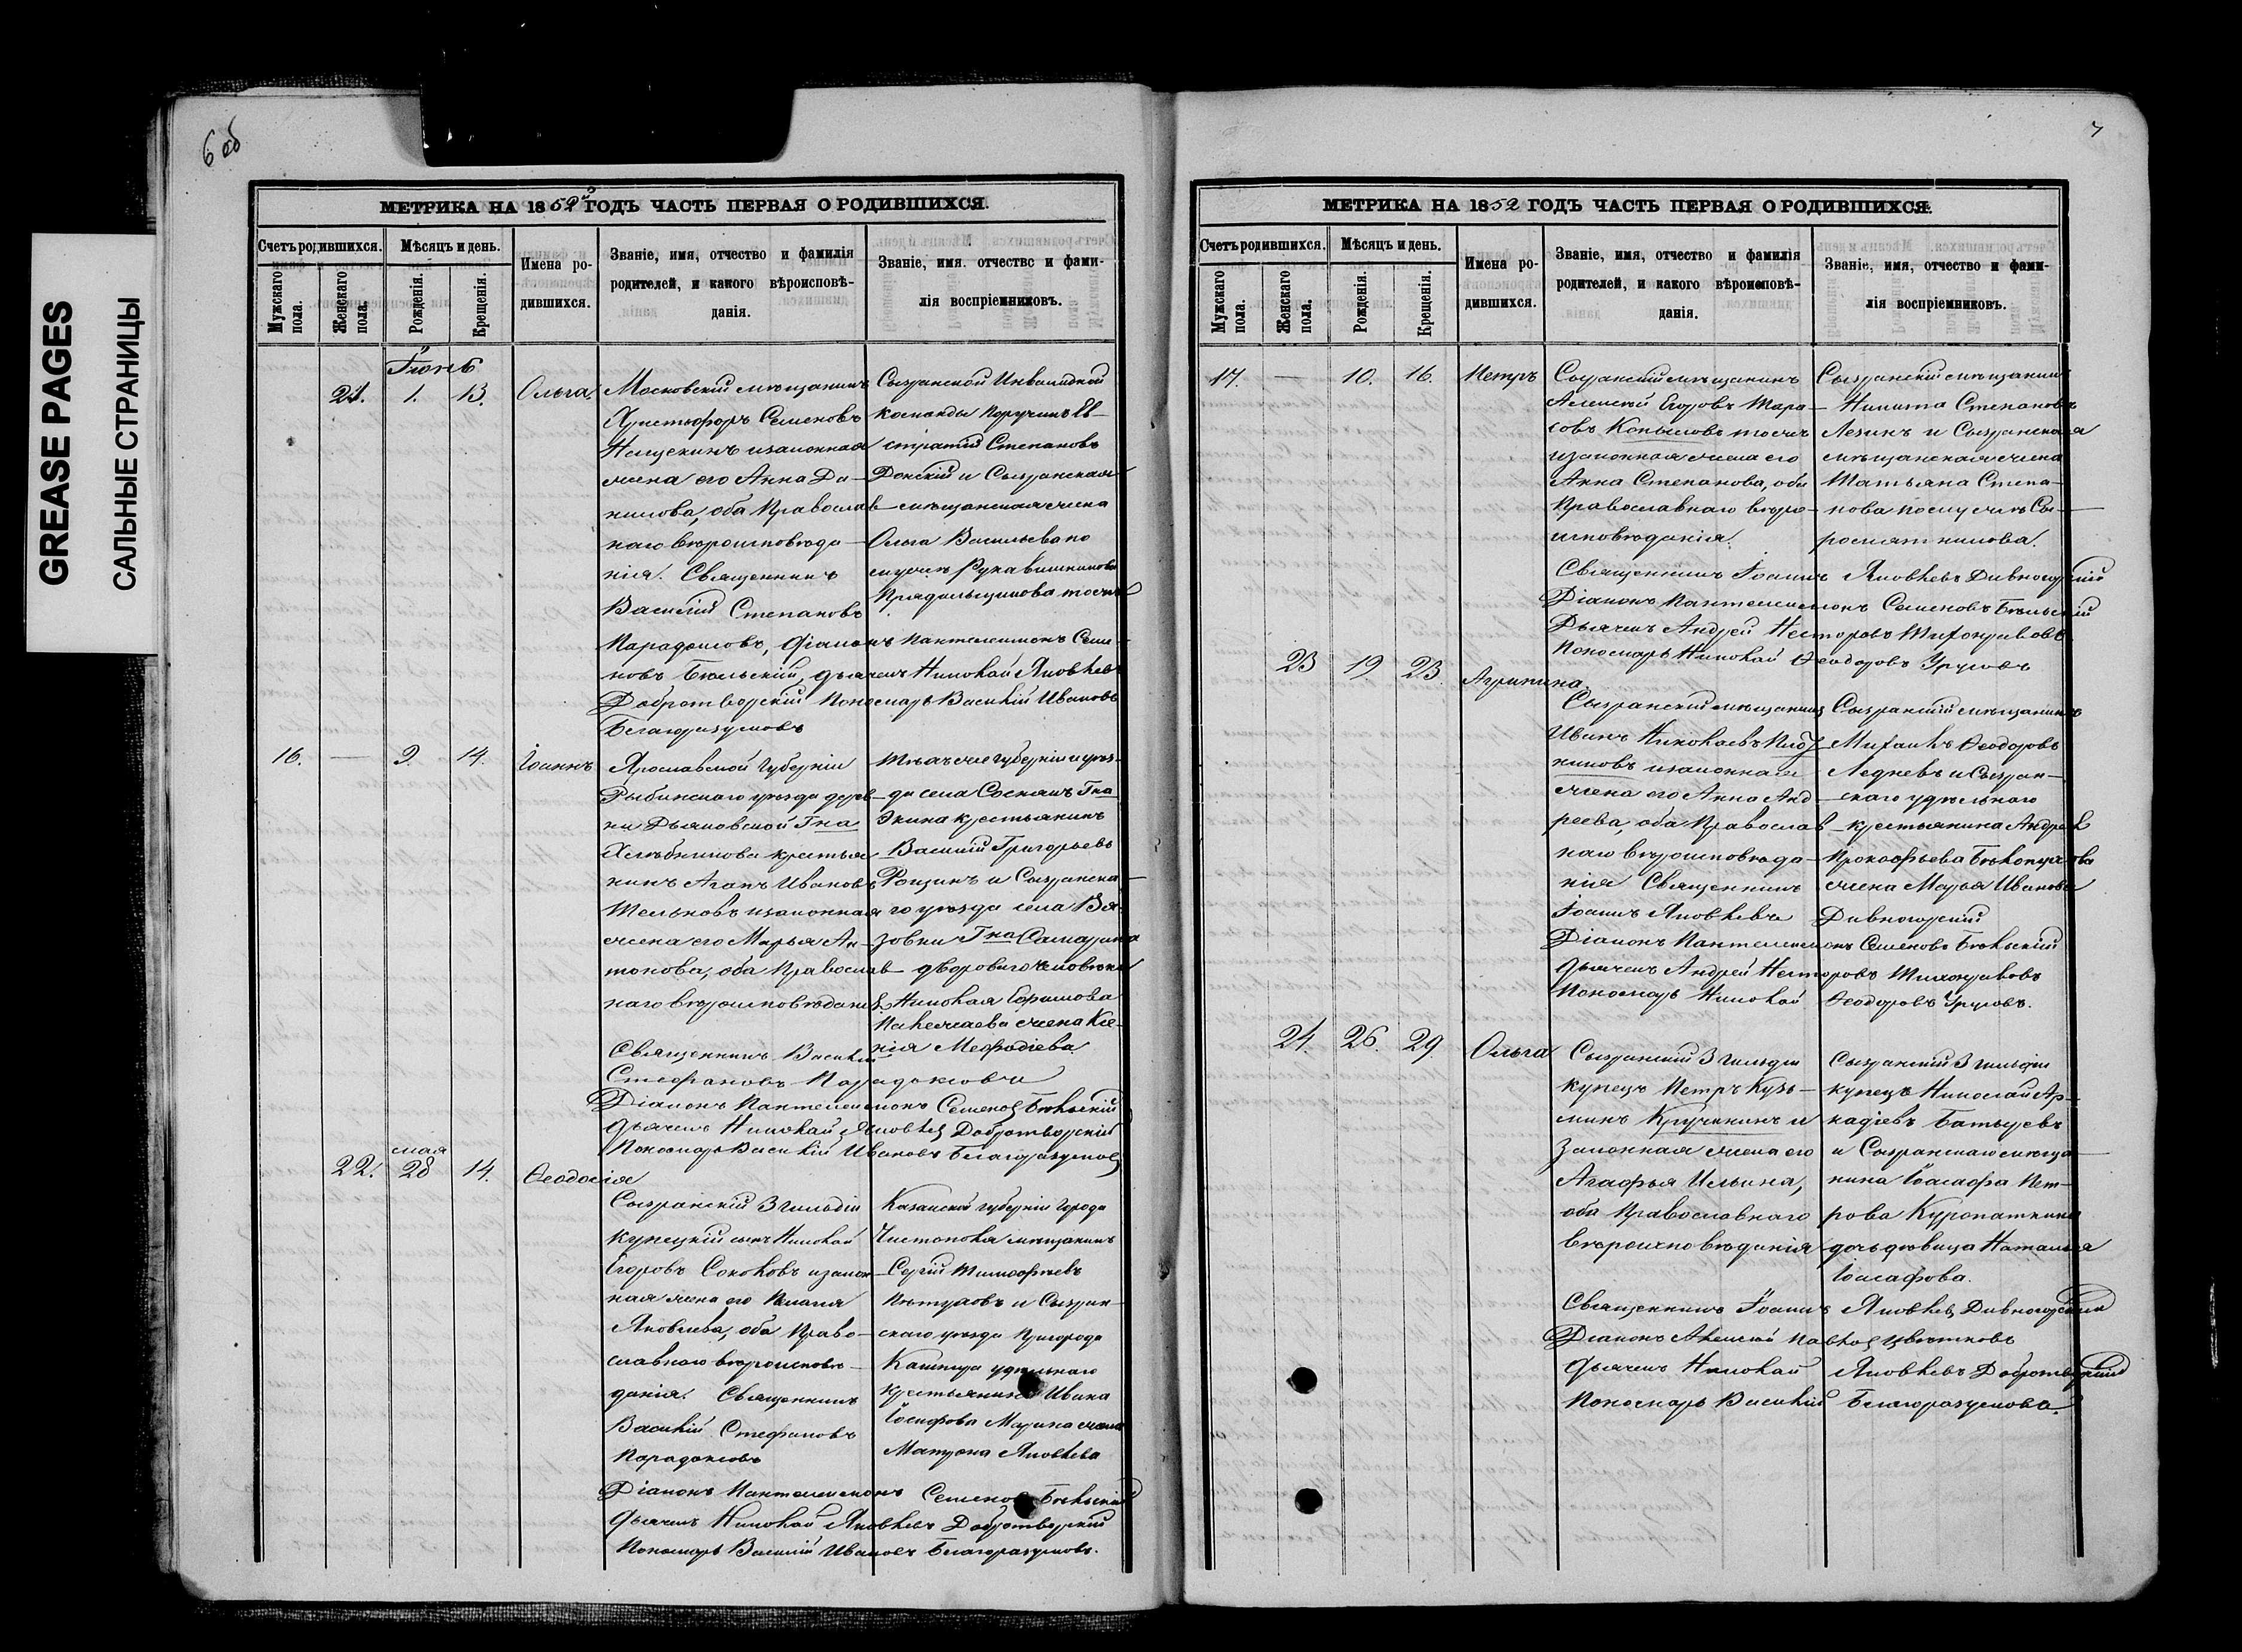 GREASE PAGES
САЛЬНЫЕ СТРАНИЦЫ
6 об
МЕТРИКА НА 1852 ГОДЪ ЧАСТЬ ПЕРВАЯ О РОДИВШИХСЯ.
Счетъ родившихся.
Мужскаго пола.
Женскаго пола.
Мѣсяцъ и день.
Рожденія.
Крещенія.
Имена ро-
дившихся.
Званіе, имя, отчество и фамилія
родителей, и какого вѣроисповѣ-
данія.
Званіе, имя. отчество и фами-
лія воспріемниковъ.
Іюнь
21. 1. 13. Ольга
Московскій мѣщанинъ
Христофоръ Семеновъ
законная
жена его Анна Да-
нилова, оба Православ-
наго вѣроисповѣда-
нія. Священникъ
Василій Степановъ
Парадоксовъ, Діаконъ Пантелеимонъ Семе-
новъ Бѣльскій, дьячекъ Николай Яковлевъ
Добротворскій Пономарь Василій Ивановъ
Благоразумовъ
Сызранской Инвалидной
команды Поручикъ Ев-
стратій Степановъ
Донскій и Сызранская
мѣщанская жена
Ольга Васильева по
мужѣ Рукавишникова
Прядильщикова тожъ
16. — 9. 14. Іоаннъ
Ярославской Губерніи
Рыбинскаго уѣзда дерев-
ни Дьяковской Гна
Хлѣбникова крестья-
нинъ Агапъ Ивановъ
законная
жена его Марья Ан-
тонова, оба Православ-
наго вѣроисповѣданія
Священникъ Василій
Стефановъ Парадоксовъ
Діаконъ Пантелеимонъ Семеновъ Бѣльскій
дьячекъ Николай Яковлевъ Добротворскій
Пономарь Василій Ивановъ Благоразумовъ
Той же Губерніи и уѣз-
да села Гна
крестьянинъ
Василій Григорьевъ
Рощинъ и Сызранска-
го уѣзда села Вя-
зовки Гна Самарина
двороваго человѣка
Николая Ефимова
жена Ксе-
нія Мефодіева.
мая
22. 28 14. Ѳеодосія
Сызранскій 3 гильдіи
купецкій сынъ Николай
Егоровъ Соколовъ и закон-
ная жена его Пелагія
Яковлева, оба Право-
славнаго вѣроисповѣ-
данія. Священникъ
Василій Стефановъ
Парадоксовъ
Діаконъ Пантелеимонъ Семеновъ Бѣльскій
Дьячекъ Николай Яковлевъ Добротворскій
Пономарь Василій Ивановъ Благоразумовъ.
Казанской губерніи Города
Чистополя мѣщанинъ
Сергій Тимофѣевъ
Пѣтуховъ и Сызран-
скаго уѣзда Пригорода
Кашпира удѣльнаго
крестьянина Ивана
Іосифова Марина жена
Матрона Яковлева
7
МЕТРИКА НА 1852 ГОДЪ ЧАСТЬ ПЕРВАЯ О РОДИВШИХСЯ.
Счетъ родившихся.
Мужскаго пола.
Женскаго пола.
Мѣсяцъ и день.
Рожденія.
Крещенія.
Имена ро-
дившихся.
Званіе, имя, отчество и фамилія
родителей, и какого вѣроисповѣ-
данія.
Званіе, имя, отчество и фами-
лія воспріемниковъ.
17. — 10. 16. Петръ
Сызранскій мѣщанинъ
Алексѣй Егоровъ Тара-
совъ Копыловъ тожъ
и законная жена его
Анна Степанова, оба
Православнаго вѣро-
исповѣданія.
Священникъ Іоаннъ Яковлевъ Дивногорскій
Діаконъ Пантелеимонъ Семеновъ Бѣльскій
Дьячекъ Андрей Несторовъ Тихонравовъ
Пономарь Николай Ѳеодоровъ Урусовъ
Сызранскій мѣщанинъ
Никита Степановъ
Лезинъ и Сызранская
мѣщанская жена
Татьяна Степа-
нова по мужѣ Сы-
ромятникова.
23 19. 23. Агрипина
Сызранскій мѣщанинъ
Иванъ Николаевъ
и законная
жена его Анна Анд-
реева, оба Православ-
наго вѣроисповѣда-
нія Священникъ
Іоаннъ Яковлевъ Дивногорскій
Діаконъ Пантелеимонъ Семеновъ Бѣльскій
дьячекъ Андрей Несторовъ Тихонравовъ
Пономарь Николай Ѳеодоровъ Урусовъ.
Сызранскій мѣщанинъ
Михаилъ Ѳеодоровъ
Ледневъ и Сызран-
скаго удѣльнаго
крестьянина Андрея
Прокофьева
жена Марья Иванова
24. 26. 29. Ольга
Сызранскій 3 гильдіи
купецъ Петръ Кузь-
минъ Кручинкинъ и
законная жена его
Агафья Ильина,
оба Православнаго
вѣроисповѣданія
Священникъ Іоаннъ Яковлевъ Дивногорскій
Діаконъ Алексѣй Павловъ Цвѣтковъ
Дьячекъ Николай Яковлевъ Добротворскій
Пономарь Василій Благоразумовъ.
Сызранскій 3 гильдіи
купецъ Николай Ар-
кадіевъ
и Сызранскаго мѣща-
нина Іоасафа Пет-
рова Куропаткина
дочь дѣвица Наталья
Іоасафова.